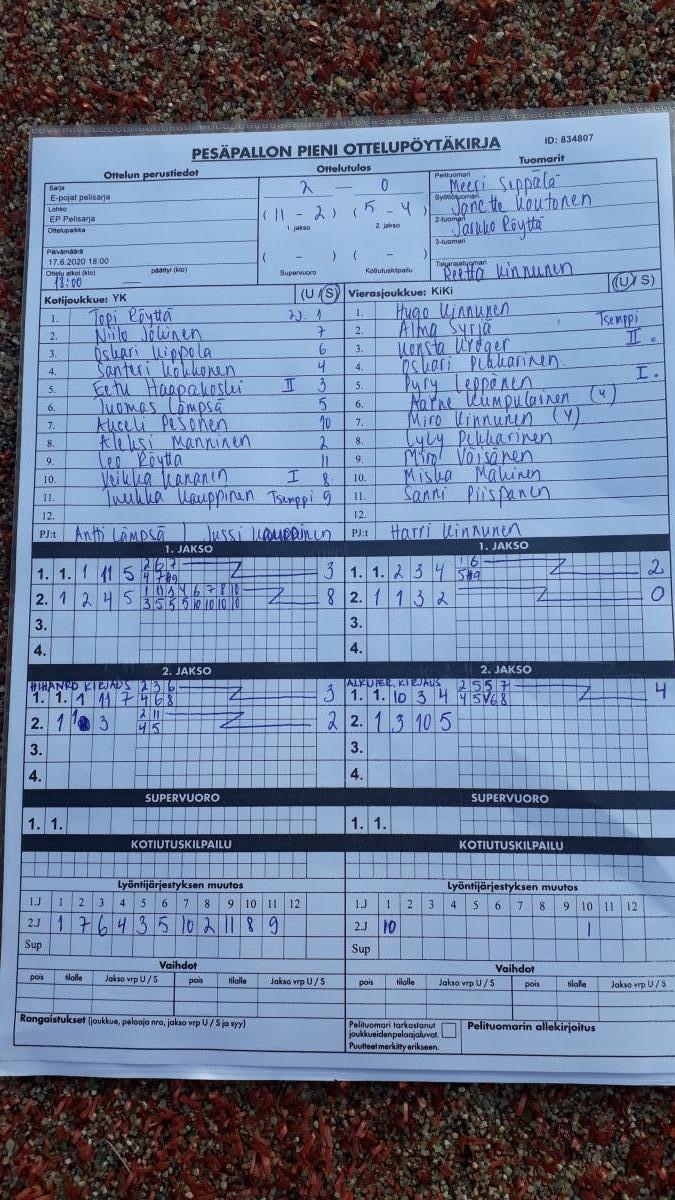 PESÄPALLON PIENI OTTELUPÖYTÄKIRJA
ID: 834807
Ottelun perustiedot
Ottelutulos
Tuomarit
Sarja
E-pojat pelisarja
Lohko
EP Pelisarja
Ottelupaikka
Päivämäärä
17.6.2020 18:00
Ottelu alkoi (klo) päättyi (klo)
18:00 —
2 — 0
(11 - 2) (5 - 4)
1. jakso 2. jakso
( - ) ( - )
Supervuoro Kotiutuskilpailu
Pelituomari
Meeri Seppälä
Syöttötuomari
Janette Koutonen
2-tuomari
Jarkko Röyttä
3-tuomari
Takarajatuomari
Reetta Kinnunen
Kotijoukkue: YK (U/S)
1. Topi Röyttä 1
2. Niilo Jokinen 7
3. Oskari Kippola 6
4. Santeri Kokkonen 4
5. Eetu Haapakoski II 3
6. Tuomas Lämpsä 5
7. Akseli Pesonen 10
8. Aleksi Manninen 2
9. Leo Röyttä 11
10. Veikka Kananen I 8
11. Tuukka Kauppinen Tsemppi 9
12.
PJ:t Antti Lämpsä Jussi Kauppinen
Vierasjoukkue: KiKi (U/S)
1. Hugo Kinnunen
2. Alma Syrjä Tsemppi
3. Konsta Kröger II.
4. Oskari Pekkarinen
5. Pyry Leppänen I.
6. Aarne Kumpulainen (Y)
7. Miro Kinnunen (Y)
8. Lyly Pekkarinen
9. Miro Väisänen
10. Miska Makinen
11. Sanni Piispanen
12.
PJ:t Harri Kinnunen
1. JAKSO
1. 1. 1 11 5 2 6 7 3
4 7 8 9
2. 1 2 4 5 8
3.
4.
1. JAKSO
1. 1. 2 3 4 2
2. 1 1 3 2 0
3.
4.
2. JAKSO
KIRJAUS 2 3 6
1. 1. 1 11 7 4 6 8 3
2. 1 3 2 11 2
4 5
3.
4.
2. JAKSO
KIRJAUS 2 5 5 7
1. 1. 10 3 4 4
2. 1 3 10 5
3.
4.
SUPERVUORO
1. 1.
SUPERVUORO
1. 1.
KOTIUTUSKILPAILU
KOTIUTUSKILPAILU
Lyöntijärjestyksen muutos
1.J 1 2 3 4 5 6 7 8 9 10 11 12
2.J 1 7 6 4 3 5 10 2 11 8 9
Sup
Lyöntijärjestyksen muutos
1.J 1 2 3 4 5 6 7 8 9 10 11 12
2.J 10 1
Sup
Vaihdot
pois tilalle Jakso vrp U / S pois tilalle Jakso vrp U / S
Vaihdot
pois tilalle Jakso vrp U / S pois tilalle Jakso vrp U / S
Rangaistukset (joukkue, pelaaja nro, jakso vrp U / S ja syy)
Pelituomari tarkastanut
joukkueidenpelaajaluvat.
Puutteet merkitty erikseen.
Pelituomarin allekirjoitus